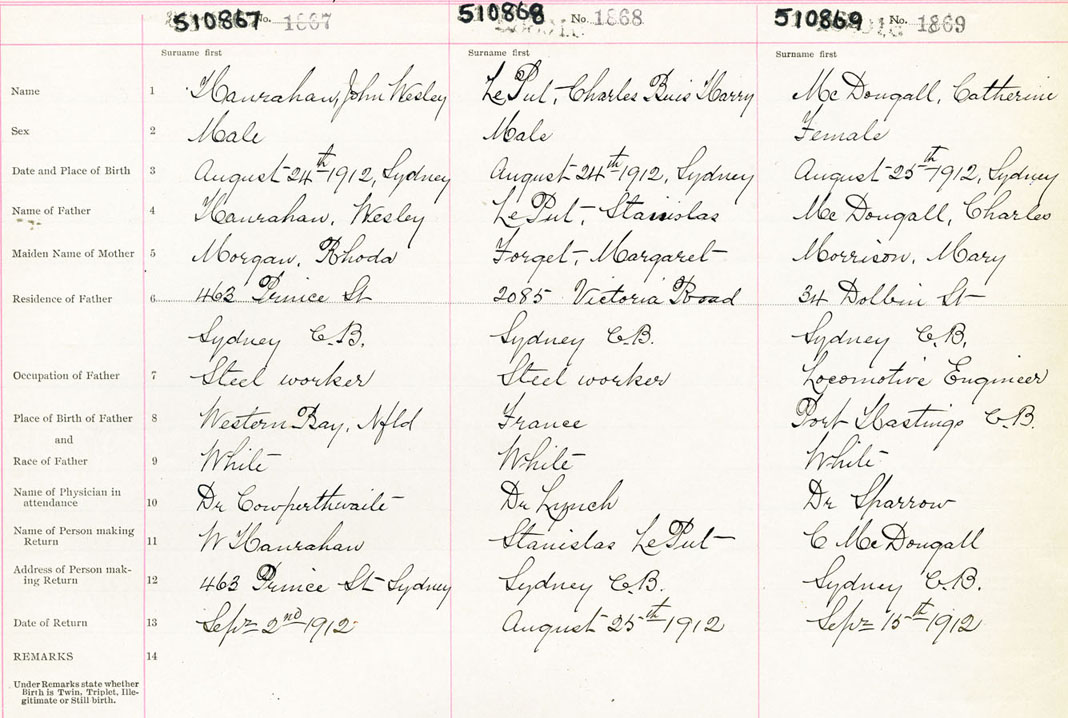 510867 No. 1867
510868 No. 1868
510869 No. 1869
Surname first Surname first Surname first
Name 1 Hanrahan, John Wesley LePut, Charles Buis Harry Mc Dougall, Catherine
Sex 2 Male Male Female
Date and Place of Birth 3 August 24th 1912, Sydney August 24th 1912, Sydney August 25th 1912, Sydney
Name of Father 4 Hanrahan, Wesley LePut, Stanislas Mc Dougall, Charles
Maiden Name of Mother 5 Morgan, Rhoda Forget, Margaret Morrison, Mary
Residence of Father 6 463 Prince St 2085 Victoria Road 34 Dolbin St
Sydney C.B. Sydney C.B. Sydney C.B.
Occupation of Father 7 Steel worker Steel worker Locomotive Engineer
Place of Birth of Father 8 Western Bay, Nfld France Port Hastings C.B.
and
Race of Father 9 White White White
Name of Physician in
attendance 10 Dr Cowperthwaite Dr Lynch Dr Sparrow
Name of Person making
Return 11 W Hanrahan Stanislas LePut C McDougall
Address of Person mak-
ing Return 12 463 Prince St Sydney Sydney C.B. Sydney C.B.
Date of Return 13 Sept 2nd 1912 August 25th 1912 Sept 15th 1912
REMARKS 14
Under Remarks state whether
Birth is Twin, Triplet, Ille-
gitimate or Still birth.